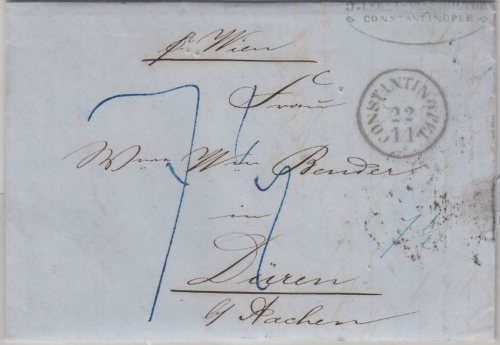 CONSTANTINOPLE
pr Wien
CONSTANTINOPEL
22
11
Frau
Wwe Wm Bender
in
Düren
b/ Aachen